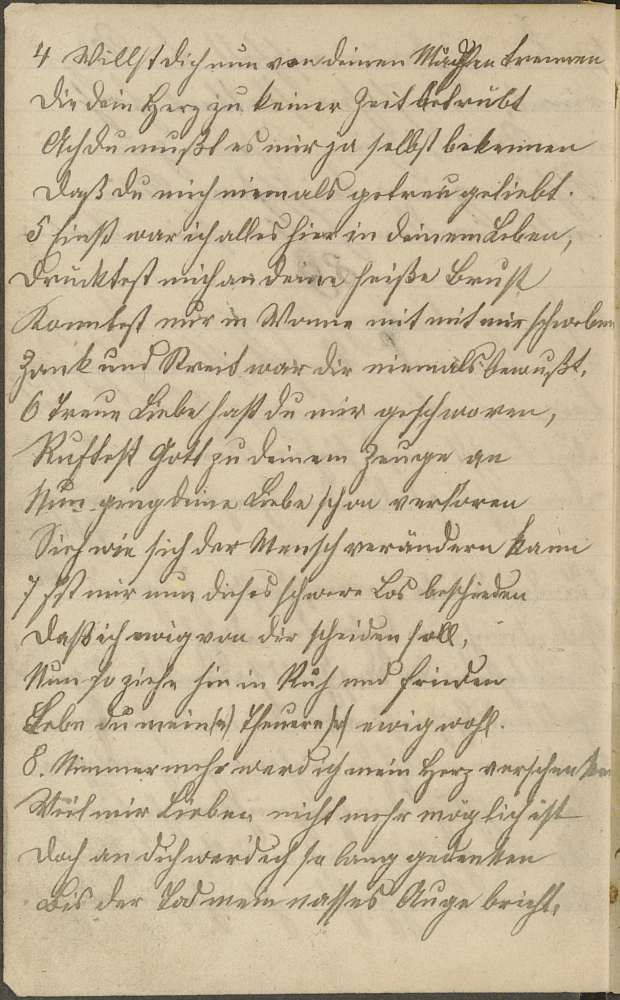 4 Willst dich nun von deinen Mädchen trennen
Die dein Herz zu keiner Zeit betrübt
Ach du mußt es mir ja selbst bekennen
Daß du mich niemals getreu geliebt.
5 Einst war ich alles hier in deinem Leben,
Drücktest mich an deine heiße Brust
Konntest nur in Wonne mit mit mir schweben
Zank und Streit war dir niemals bewußt,
6 Treue Liebe hast du mir geschworen,
Ruftest Gott zu deinem Zeuge an
Nun ging deine Liebe schon verloren
Sieh wie sich der Mensch verändern kann
7 Ist mir nun dieses schwere Los beschieden
Daß ich ewig von dir scheiden soll,
Nun so ziehe hin in Ruh und Frieden
Lebe du mein(e) Theuere(r) ewig wohl.
8. Nimmermehr werd ich mein Herz verschenken
Weil mir Lieben nicht mehr möglich ist
Doch an dich werd ich so lang gedenken
Bis der Tod mein nasses Auge bricht,